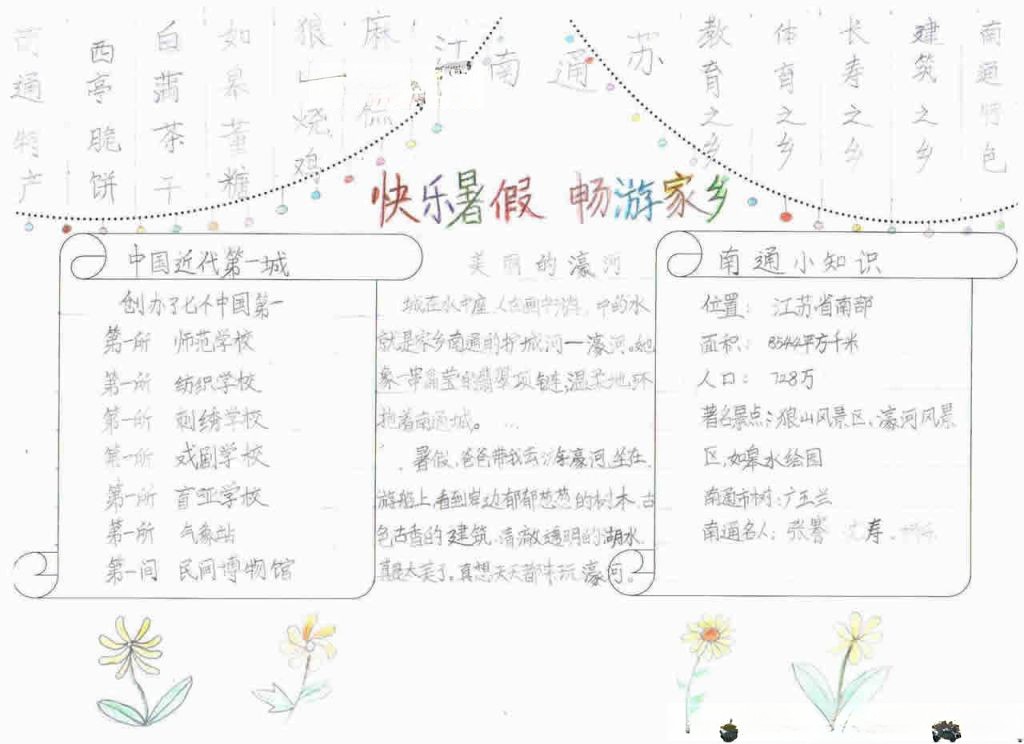 南通特产
西亭脆饼
白蒲茶干
如皋董糖
狼山烧鸡
麻
江
南
通
苏
教育之乡
体育之乡
长寿之乡
建筑之乡
南通特色
快乐暑假 畅游家乡
中国近代第一城
创办了七个中国第一
第一所 师范学校
第一所 纺织学校
第一所 刺绣学校
第一所 戏剧学校
第一所 盲哑学校
第一所 气象站
第一间 民间博物馆
美丽的濠河
城在水中座,人在画中游,中的水
就是家乡南通的护城河一濠河。她
象一串晶莹的翡翠项链,温柔地环
抱着南通城。...
暑假,爸爸带我去游濠河,坐在
游船上,看到岸边郁郁葱葱的树木,古
色古香的建筑,清澈透明的湖水
真是太美了。真想天天都来玩濠河。
南通小知识
位置: 江苏省南部
面积: 8544平方千米
人口: 728万
著名景点:狼山风景区、濠河风景
区,如皋水绘园
南通市树:广玉兰
南通名人: 张謇